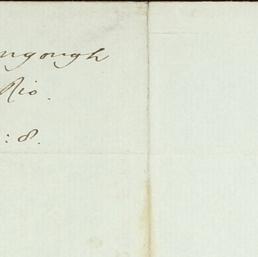 ngough
Rio.
: 8.